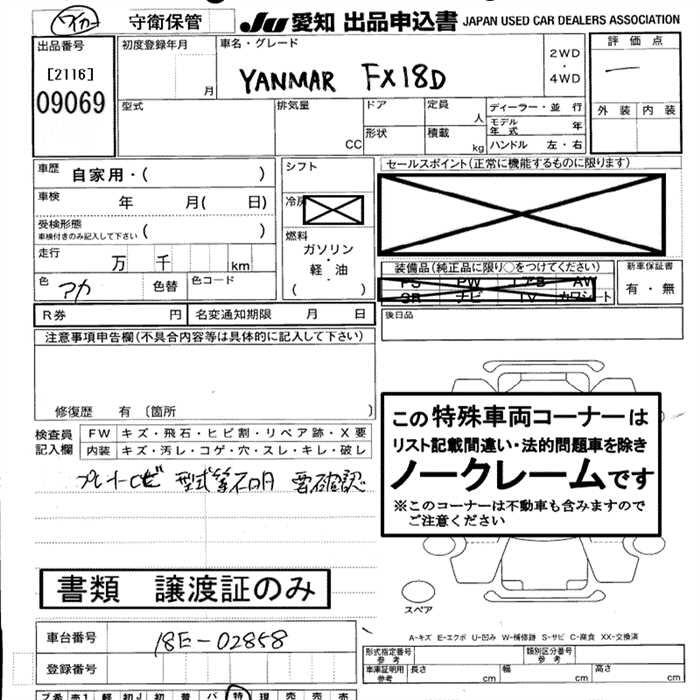 守衛保管 JU 愛知 出品申込書 JAPAN USED CAR DEALERS ASSOCIATION
出品番号 初度登録年月 車名・グレード 2WD ・ 4WD 評価点
[2116]
09069 月 YANMAR FX18D
外装 内装
型式 排気量 CC ドア 定員 人 ディーラー・並行
モデル年式 年
形状 積載 kg ハンドル 左・右
車歴 自家用・( ) シフト セールスポイント(正常に機能するものに限ります)
車検 年 月( 日) 冷房
受検形態 ( )
車検付きのみ記入して下さい
燃料
ガソリン
軽・油
( )
走行 万 千 km
装備品(純正品に限り○をつけてください) 新車保証書
PS PW エアB AW 有・無
SR ナビ TV カワシート
色 アカ 色替 色コード
R券 円 名変通知期限 月 日 後日品
注意事項申告欄(不具合内容等は具体的に記入して下さい)
修復歴 有 〔箇所 〕
検査員記入欄 FW キズ・飛石・ヒビ割・リペア跡・X要
内装 キズ・汚レ・コゲ・穴・スレ・キレ・破レ
型式等不明 要確認
この特殊車両コーナーは
リスト記載間違い・法的問題車を除き
ノークレームです
※このコーナーは不動車も含みますので
ご注意ください
書類 譲渡証のみ
スペア
A-キズ E-エクボ U-凹み W-補修跡 S-サビ C-腐食 XX-交換済
車台番号 18E-02858
登録番号
型式指定番号 参考 類別区分番号 参考
車庫証明用 参考 長さ cm 幅 cm 高さ cm